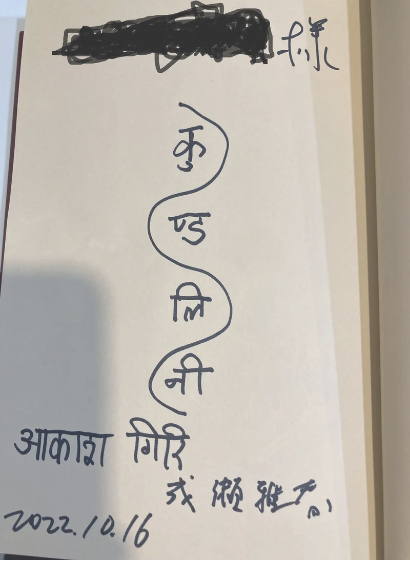 様
कु
ण्ड
लि
नी
आकाश गिरि
成瀬雅春
2022.10.16